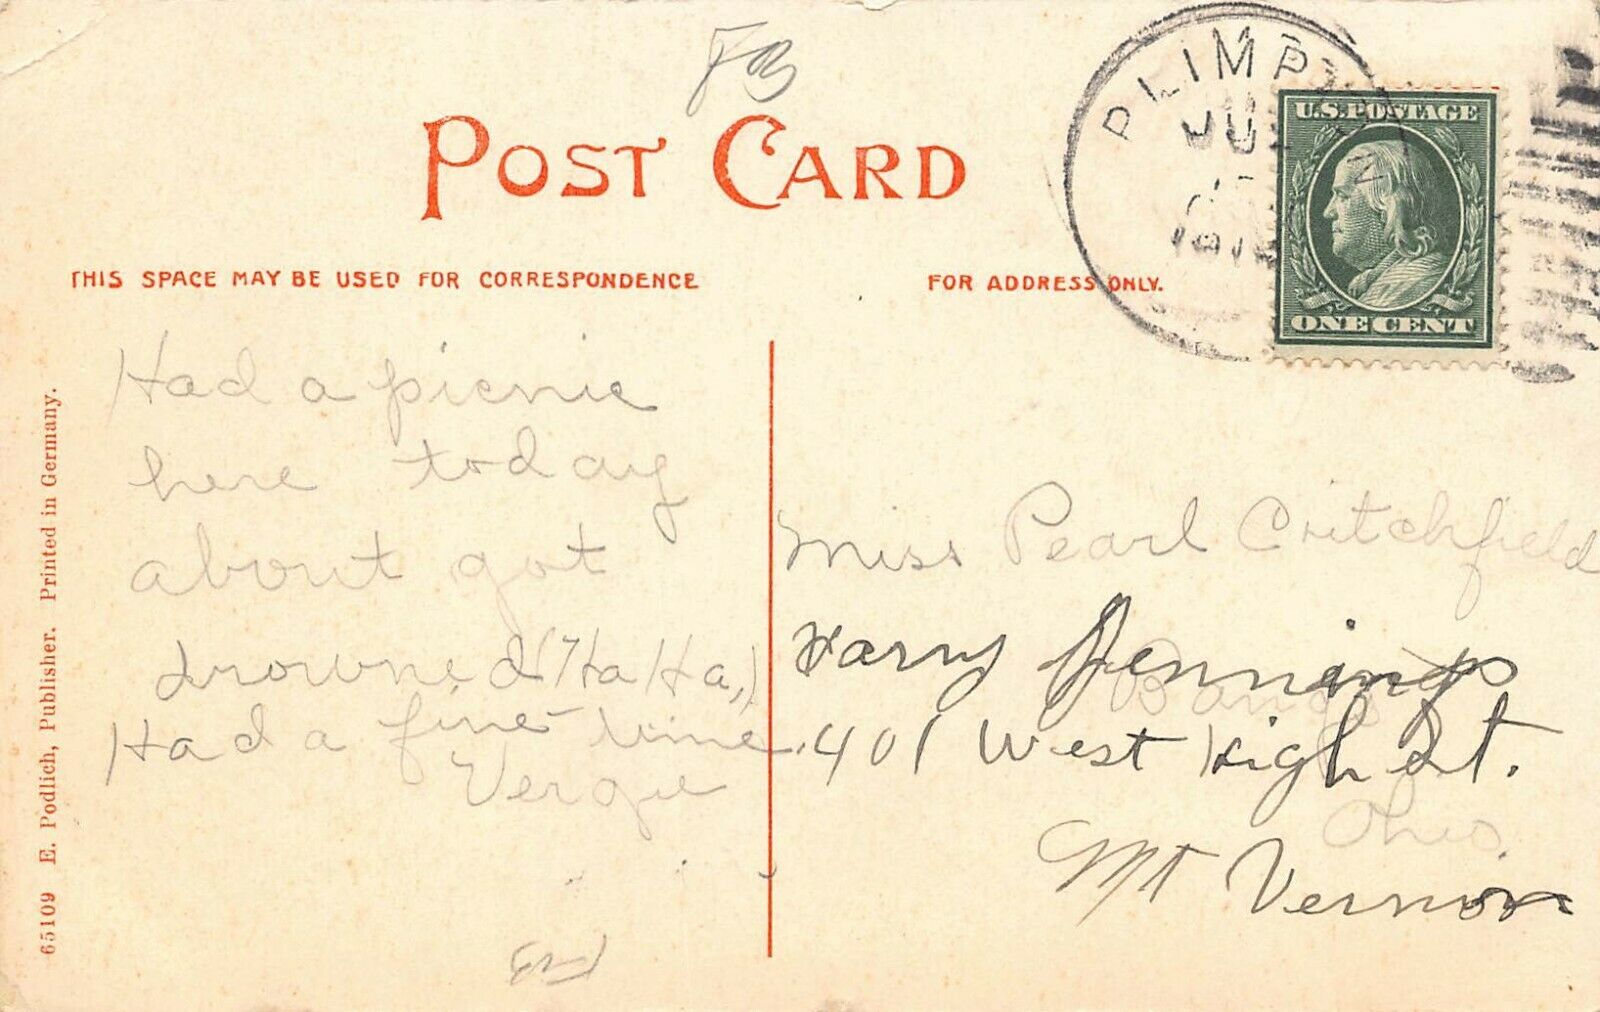 FB
POST CARD
PLIMPTON
U.S. POSTAGE
ONE CENT
THIS SPACE MAY BE USED FOR CORRESPONDENCE
FOR ADDRESS ONLY.
Had a picnic
here today
about got
drowned (Ha Ha,)
Had a fine time
Vergie
Miss Pearl Critchfield
Harry Jennings
Bangs
401 West High St.
Ohio.
Mt Vernon
65109 E. Podlich, Publisher. Printed in Germany.